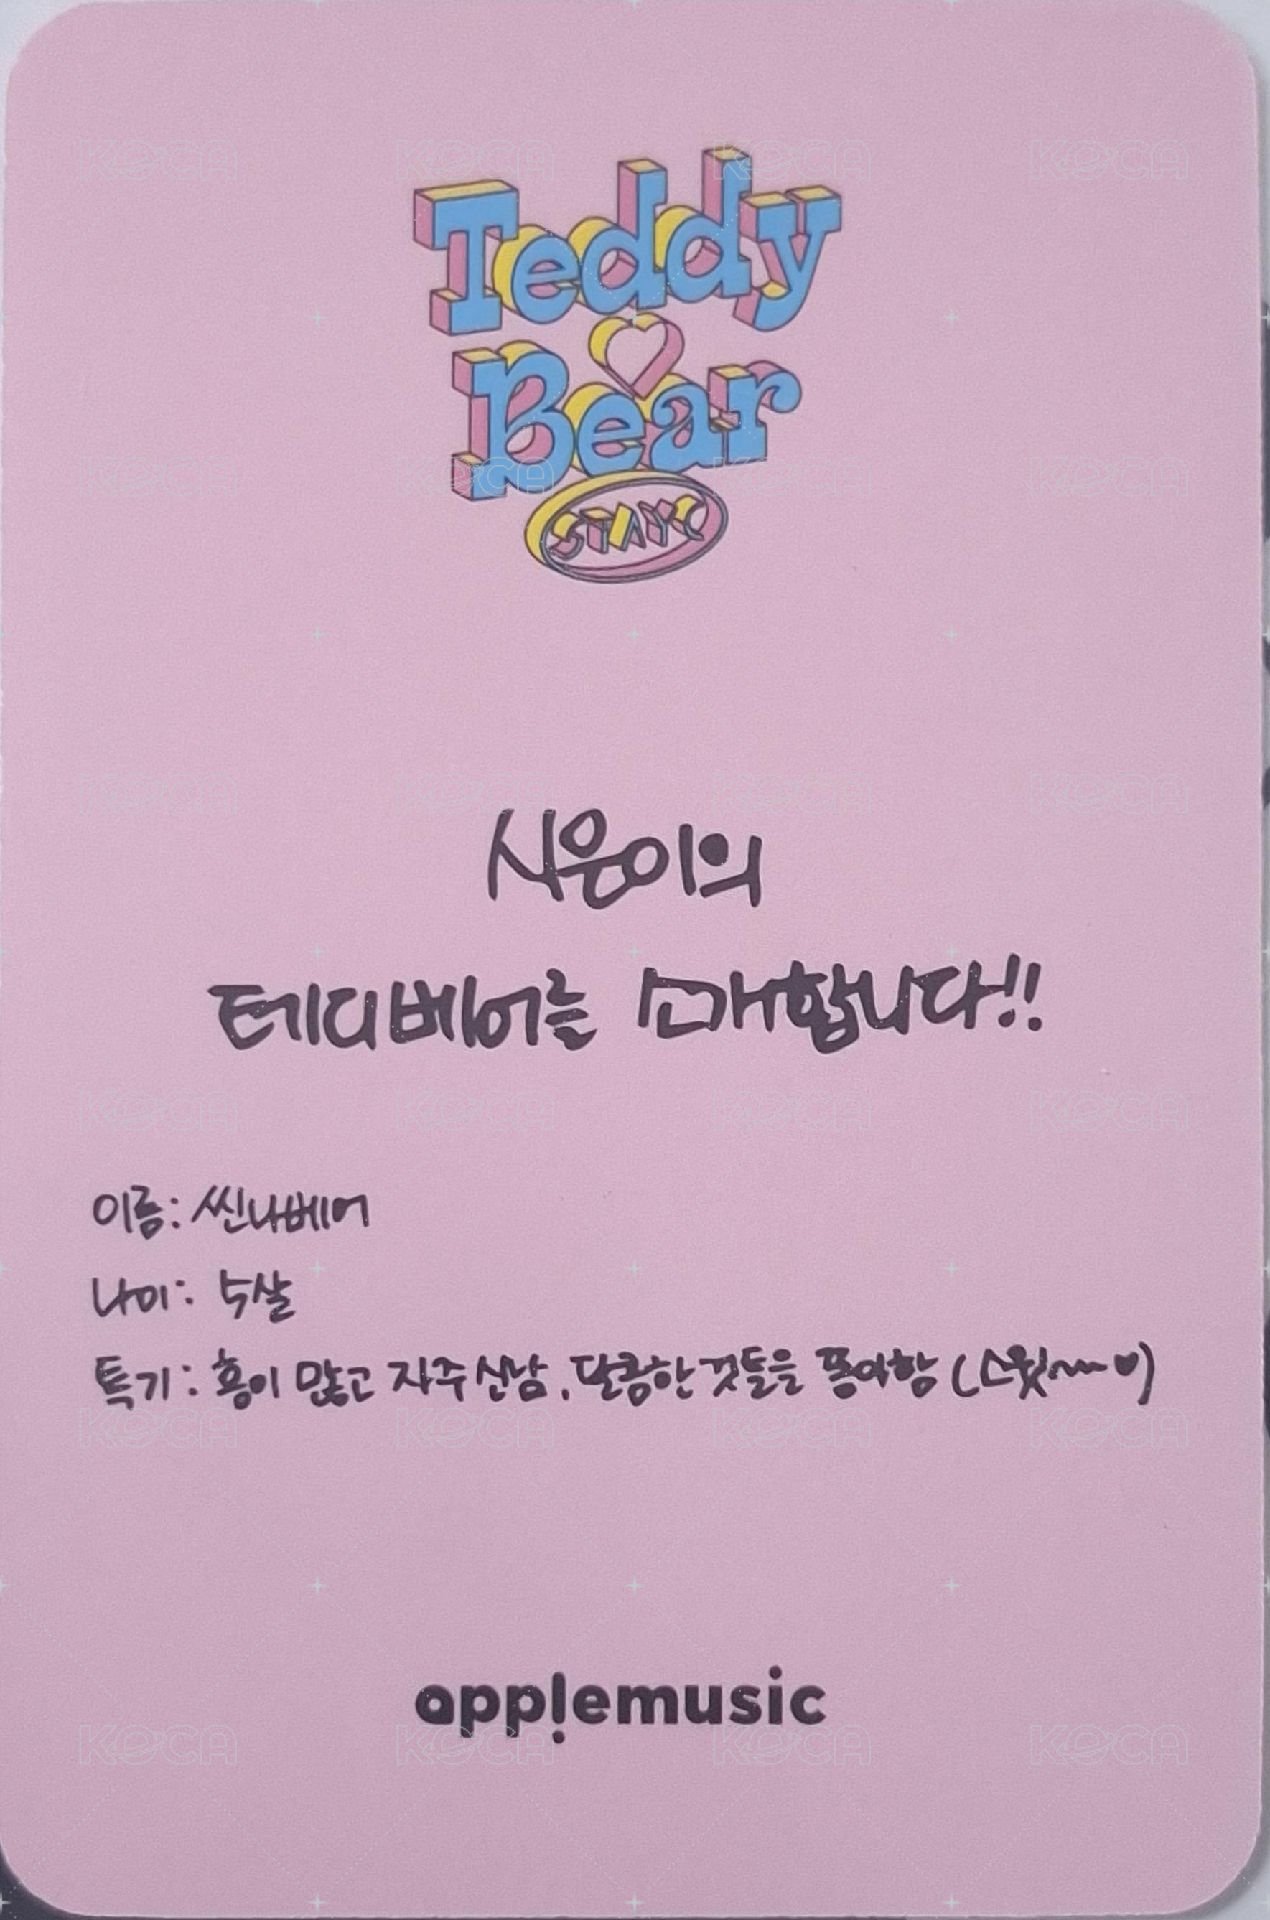 Teddy
Bear
STAYC
시은이의
테디베어를 소개합니다!!
이름: 씬나베어
나이: 5살
특기: 흥이 많고 자주 신남, 달콤한 것들을 좋아함 (스윗~~ ♡)
app!emusic
KOCA